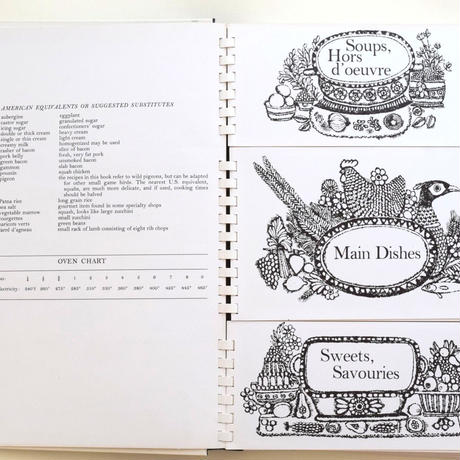 AMERICAN EQUIVALENTS OR SUGGESTED SUBSTITUTES
aubergine eggplant
castor sugar granulated sugar
icing sugar confectioners' sugar
double or thick cream heavy cream
single or thin cream light cream
creamy milk homogenized may be used
rasher of bacon slice of bacon
pork belly fresh, very fat pork
green bacon unsmoked bacon
gammon slab bacon
poussin squab chicken
pigeon the recipes in this book refer to wild pigeons, but can be adapted
for other small game birds. The nearest U.S. equivalent,
squabs, are much more delicate, and if used, cooking times
should be halved
Patna rice long grain rice
sea salt gourmet item found in some specialty shops
vegetable marrow squash, looks like large zucchini
courgettes small zucchini
haricots verts green beans
carré d'agneau small rack of lamb consisting of eight rib chops
OVEN CHART
Soups,
Hors
d'oeuvre
Main Dishes
Sweets,
Savouries